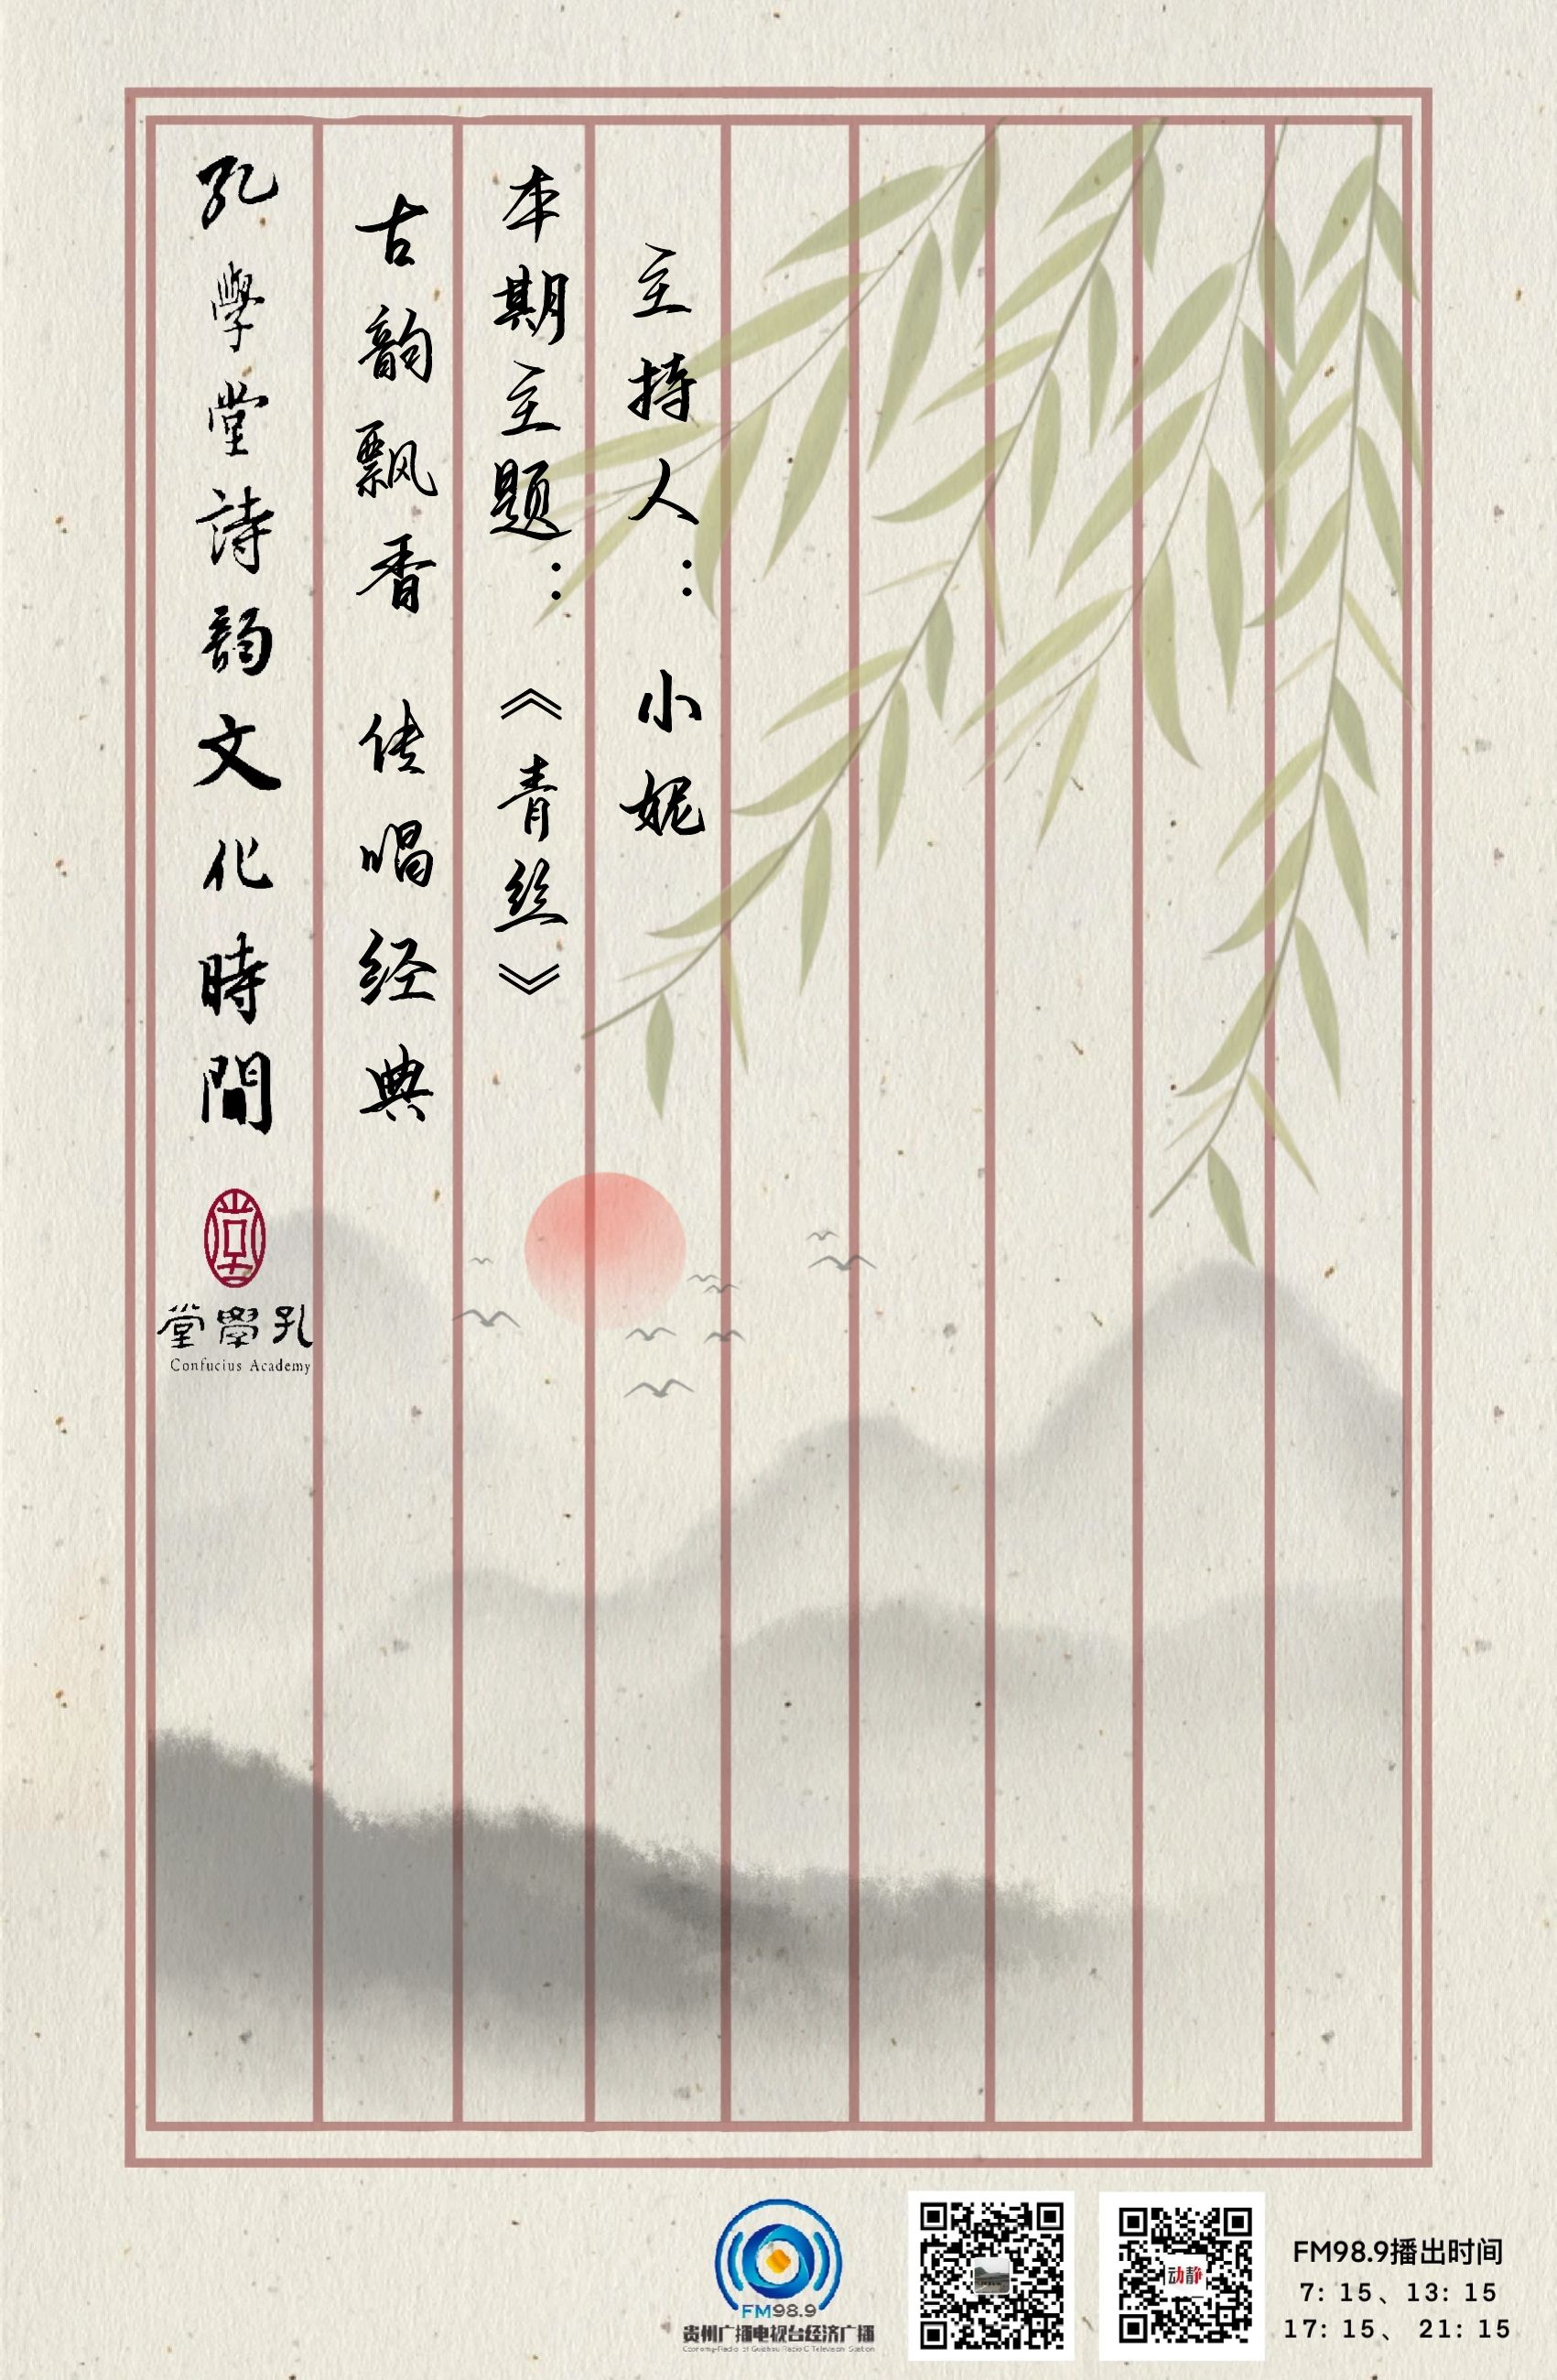 孔學堂詩韵文化時間
古韵飘香 传唱经典
本期主题：《青丝》
主持人：小妮
堂學孔
Confucius Academy
FM98.9
贵州广播电视台经济广播
动静
FM98.9播出时间
7: 15、13: 15
17: 15、 21: 15